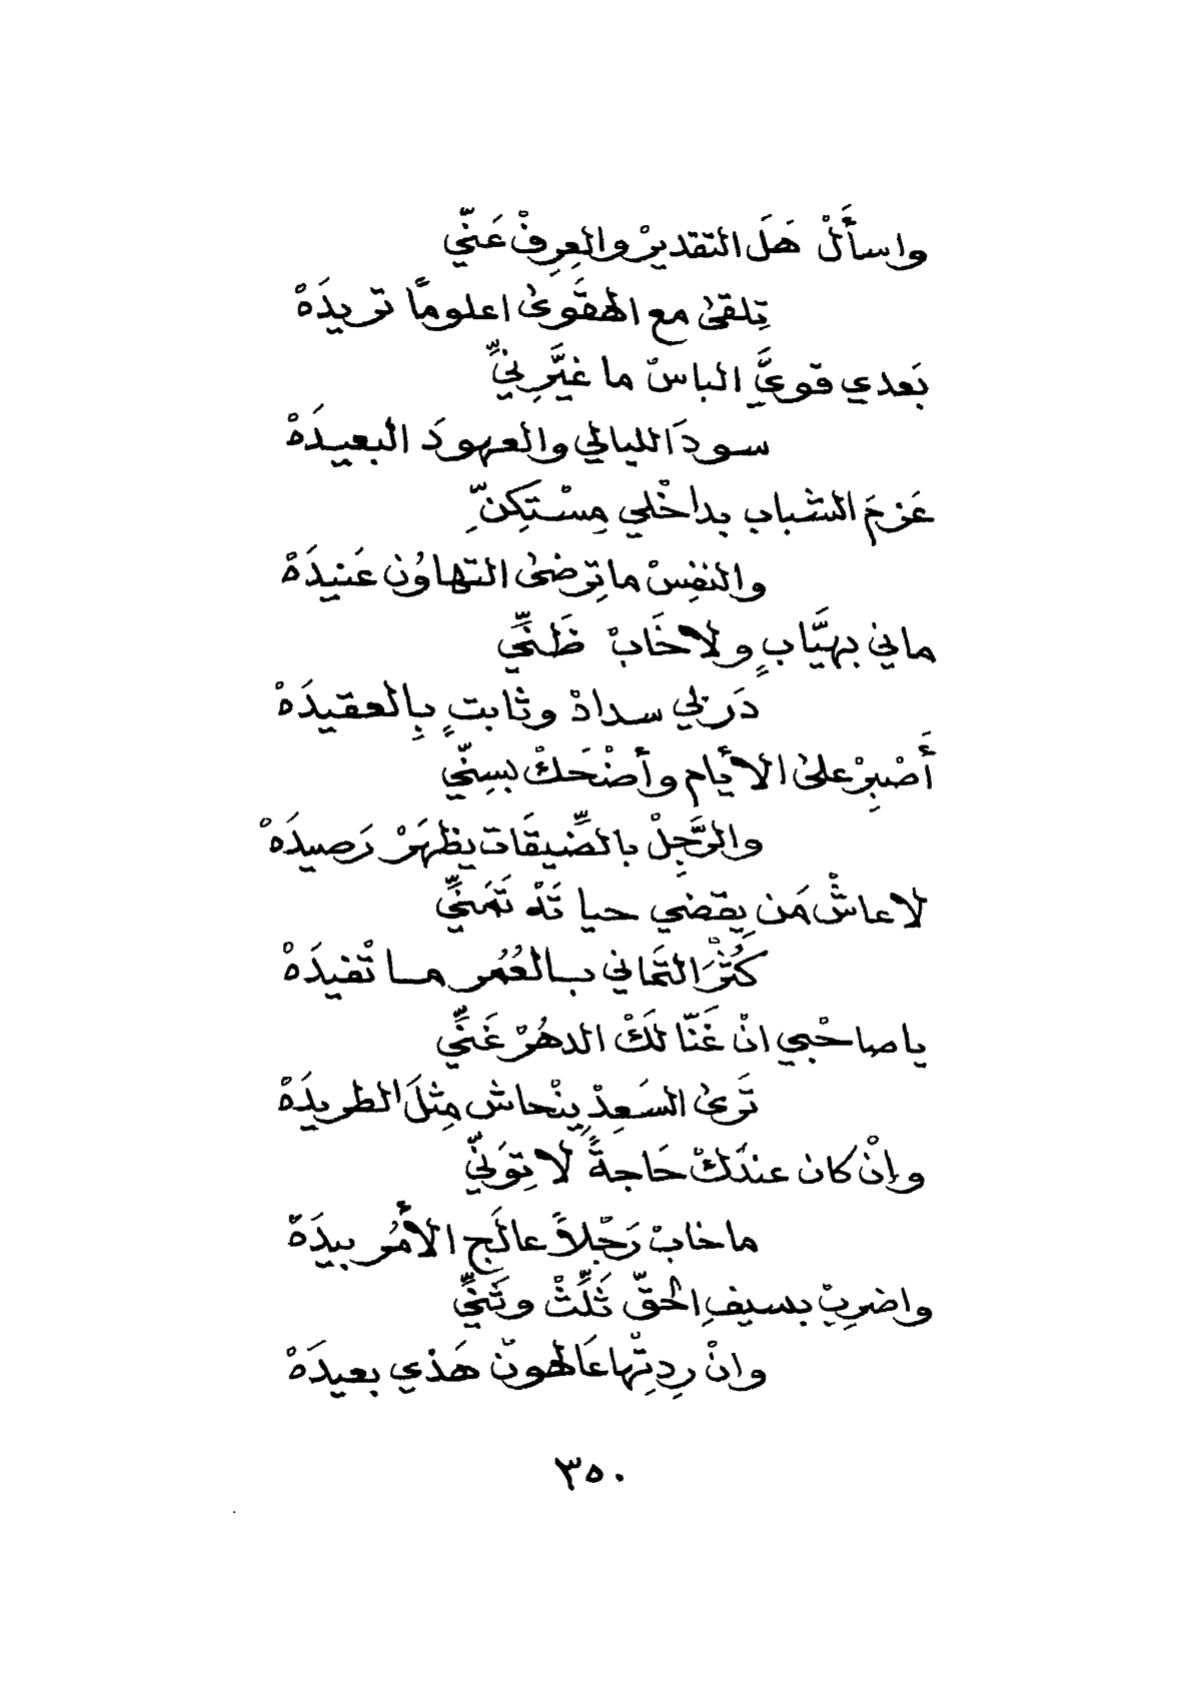 واسأَلْ هَلَ التقديرْ والعِرِفْ عَنّي
تِلقىٰ مع الهقَوىٰ اعلومًا تريدَهْ
بَعدي قويَّ الباسْ ما غيَّرِنيِّ
سودَ الليالي والعهودَ البعيدَهْ
عَزمَ الشباب بداخْلي مِسْتَكِنّ
والنفِسْ ماتِرضىٰ التهاوُن عَنيدَهْ
ماني بهيَّابٍ ولاخَابْ ظَنيِّ
دَربي سدادْ وثابتٍ بِالعقيدَهْ
أَصْبِرْ علىٰ الأيام وأضْحَكْ بسِنّي
والرَّجِلْ بالضِّيقَات يظهَرْ رَصيدَهْ
لاعاشْ مَن يِقضي حياتَهْ تَمَنيِّ
كُثْرَ التَماني بالعُمُر ما تْفيدَهْ
ياصاحْبي انْ غَنّا لَكْ الدهُرْ غَنيِّ
تَرىٰ السَعِدْ يِنْحاش مِثلَ الطريدَهْ
وإنْ كان عندَكْ حَاجةً لاتِوَنيّ
ماخابْ رَجْلاً عالَج الأمُر بيدَهْ
واضرِبْ بسيفِ الحقّ ثَلِّثْ وثَنيِّ
وانْ رِدِتْها عَالهونْ هَذي بعيدَهْ
٣٥٠